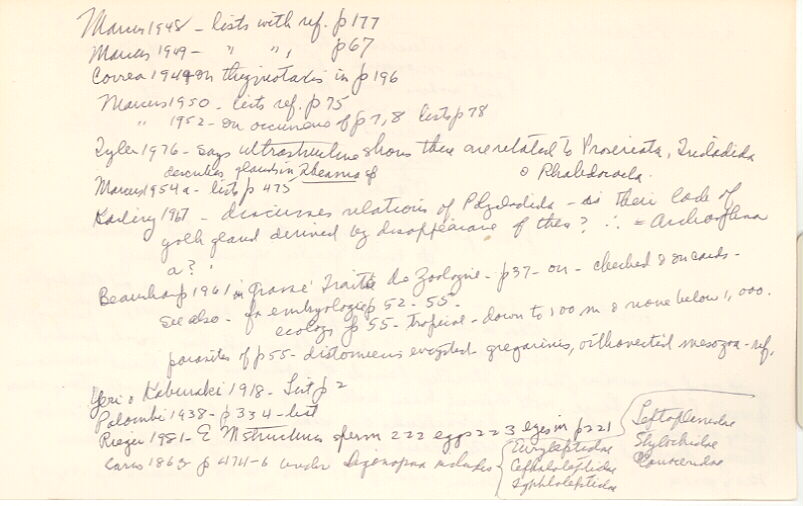 Marcus 1948 - lists with ref. p 177
Marcus 1949 - " ", p 67
Correa 1949 on thigmotaxis in p 196
Marcus 1950 - lists ref. p 75
" 1952 - on occurrence of p 7, 8 lists p 78
Tyler 1976 - says ultrastructure shows these are related to Proseriata, Tricladida
describes glands in of & Rhabdocoela.
Marcus 1954a - list p 475
Karling 1967 - discusses relations of Polycladida - is their lack of
yolk gland derived by disappearance of them? ∴ = Archoophora
a?
Beauchamp 1961 in Grassé Traité de Zoologie - p 37 - on - checked & on cards -
see also - for embryologie p 52-55 -
ecology p 55 - tropical - down to 100 m & none below 1,000.
parasites of p 55 - distomiens encysted gregarines, orthonectid mesozoa - ref.
Yeri & Kaburaki 1918 - List p 2
Palombi 1938 - p 334 - list
Rieger 1981 - E M structures sperm 222 eggs 223 eyes in p 221
Carus 1863 p 474-6 under includes
Euryleptidae
Cephaloleptidae
Typhloleptidae
Leptoplanidae
Stylochidae